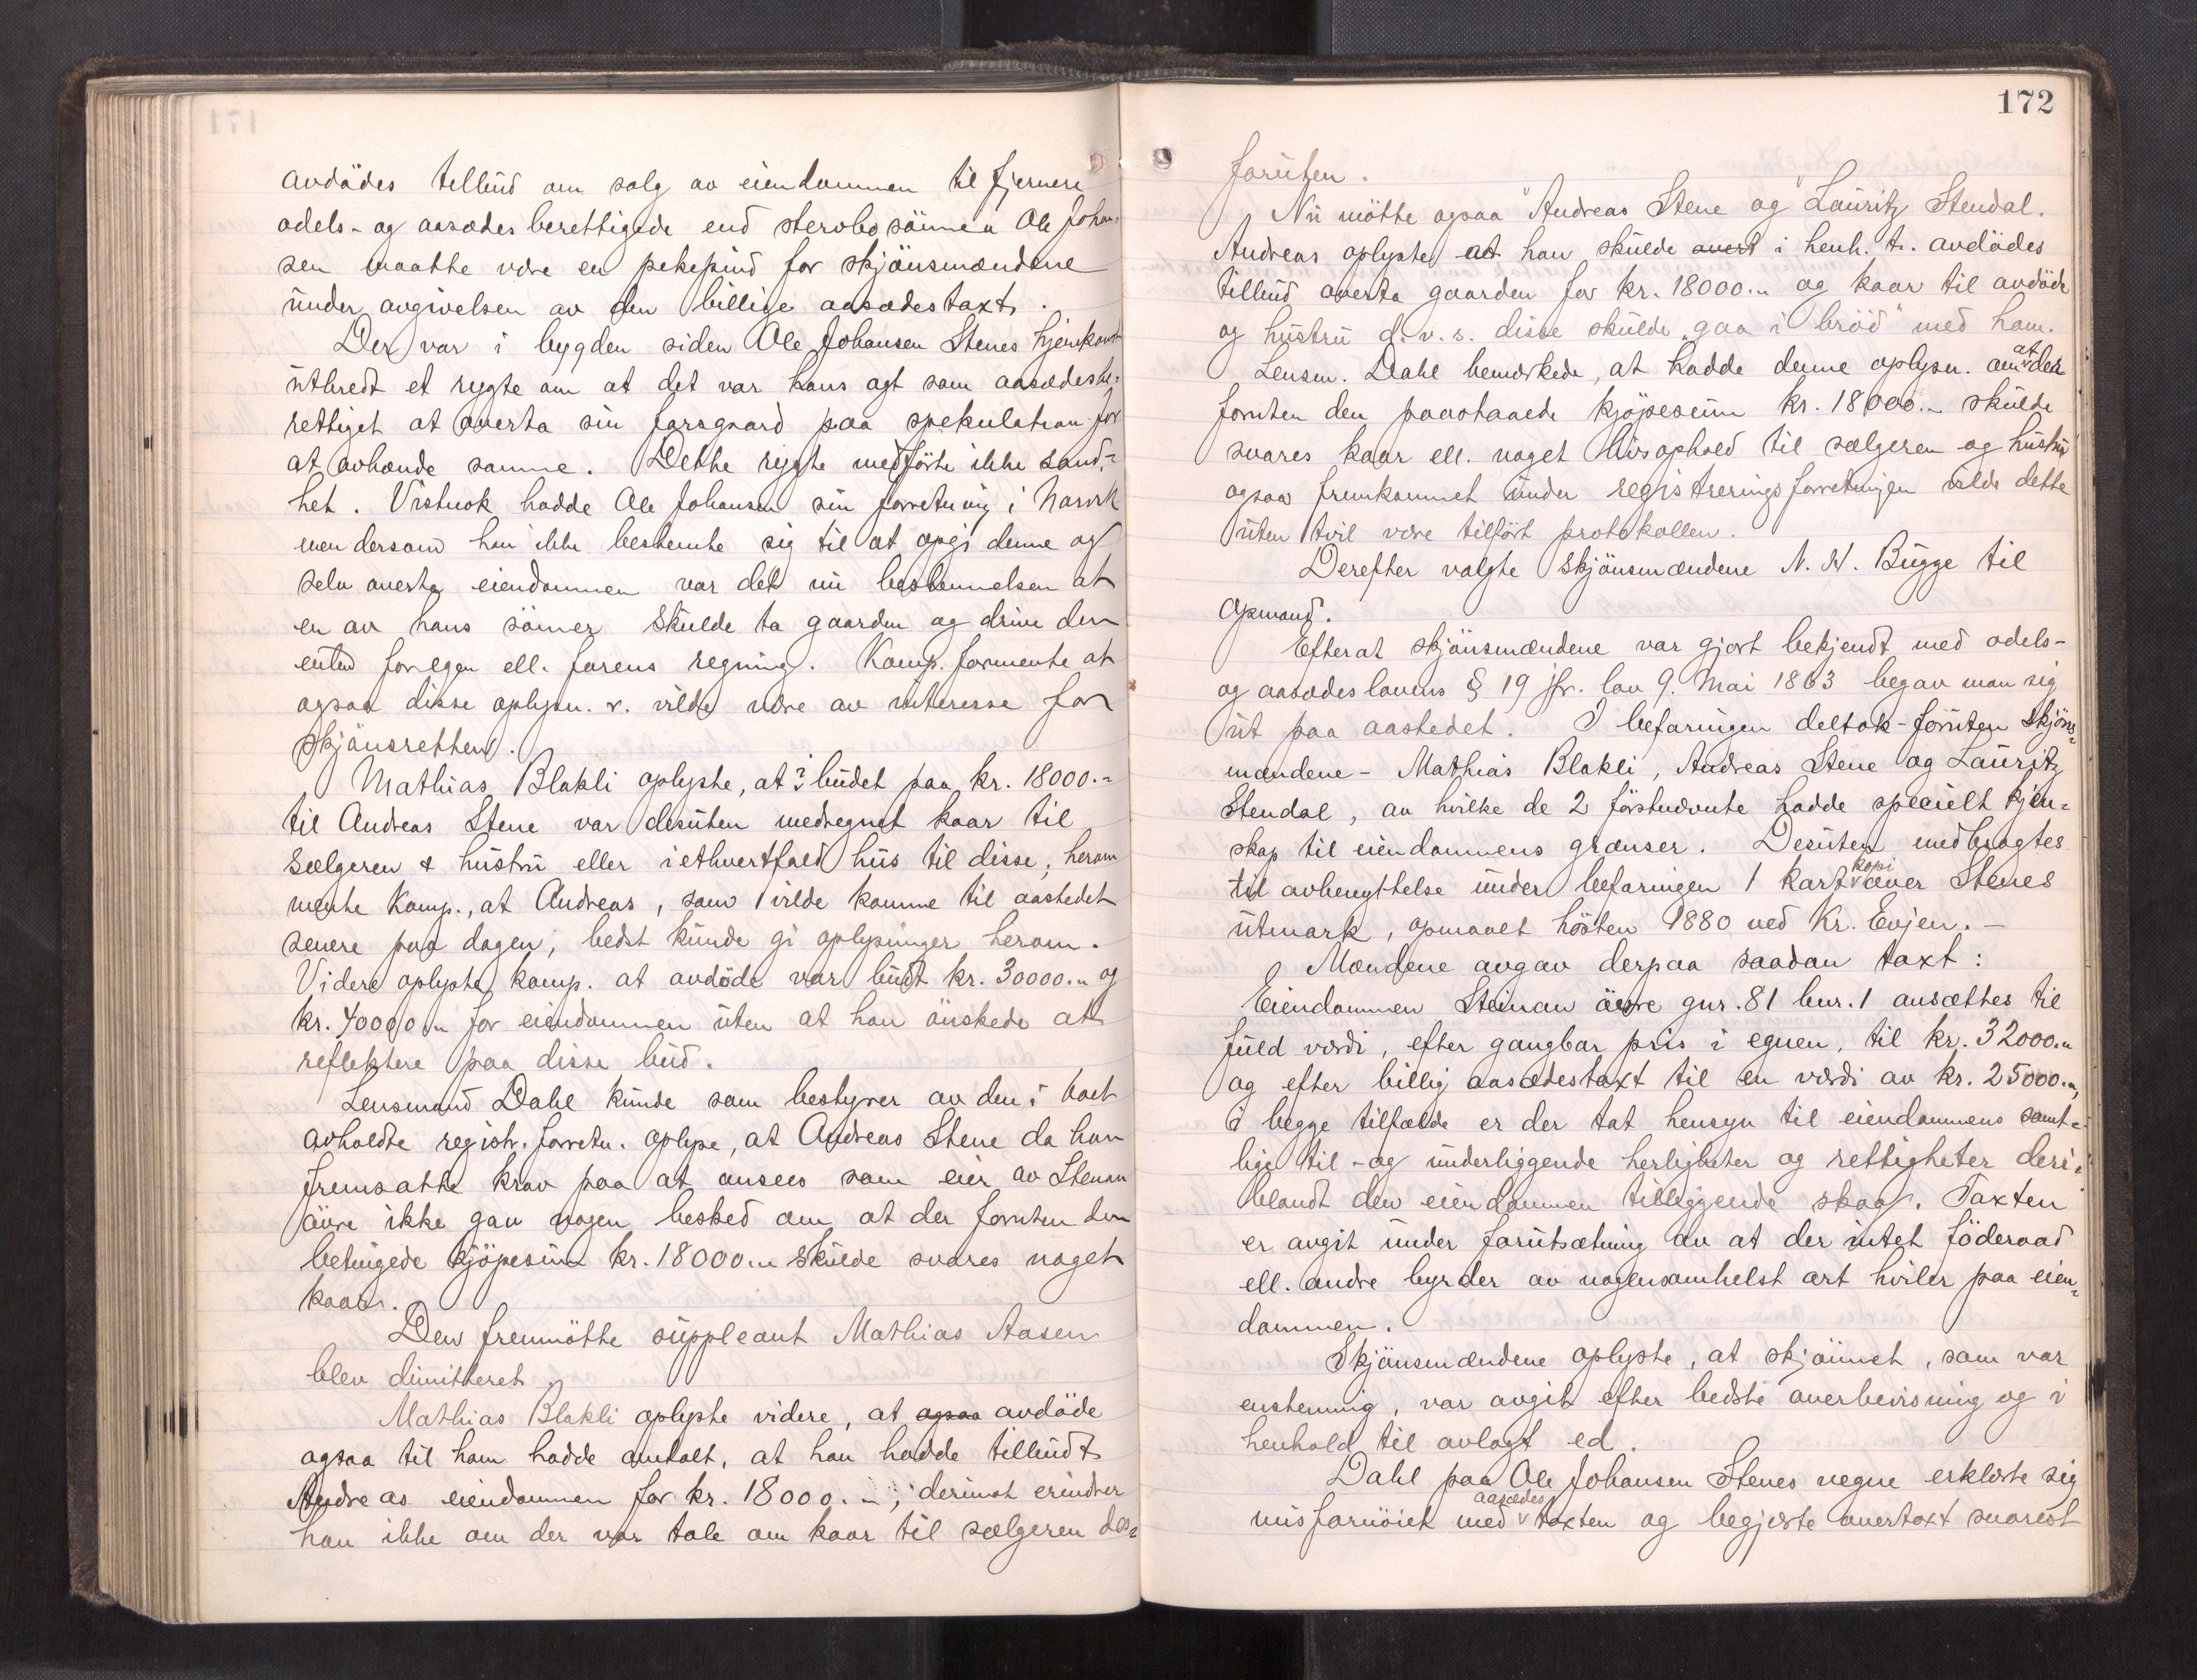 avdödes tilbud om salg av eiendommen til fjernere
odels- og aasædesberettigede end sterbosönnen Ole Johan-
sen maatte være en pekepind for skjönsmændene
under avgivelsen av den billige aasædestaxt.
Der var i bygden siden Ole Johansen Stenes hjemkomst
utbredt et rygte om at det var hans agt som aasædesbe-
rettiget at overta sin farsgaard paa spekulation for
at avhænde samme. Dette rygte medförte ikke sand-
het. Vistnok hadde Ole Johansen sin forretning i Narvik
men dersom han ikke bestemte sig til at opgi denne og
selv overta eiendommen var det nu bestemmelsen at
en av hans sönner skulde ta gaarden og drive den
enten for egen ell. farens regning. Komp. formente at
ogsaa disse oplysn. r. vilde være av interesse for
skjönsretten.
Mathias Blakli oplyste, at i budet paa kr. 18000.-
til Andreas Stene var desuten medregnet kaar til
sælgeren & hustru eller i ethvertfald hus til disse; herom
mente Komp., at Andreas, som vilde komme til aastedet
senere paa dagen, bedst kunde gi oplysninger herom.
Videre oplyste komp. at avdöde var budt kr. 30000.- og
kr. 40000.- for eiendommen uten at han önskede at
reflektere paa disse bud.
Lensmand Dahl kunde som bestyrer av den i boet
avholdte registr. forretn. oplyse, at Andreas Stene da han
fremsatte krav paa at ansees som eier av Stenan
övre ikke gav nogen besked om at der foruten den
betingede kjöpesum kr. 18000.- skulde svares noget
kaar.
Den fremmötte suppleant Mathias Aasen
blev dimitteret.
Mathias Blakli oplyste videre, at ogsaa avdöde
ogsaa til ham hadde omtalt, at han hadde tilbudt
Andreas eiendommen for kr. 18000.-; derimot erindrer
han ikke om der var tale om kaar til sælgeren des-
172
foruten.
Nu mötte ogsaa Andreas Stene og Lauritz Stendal.
Andreas oplyste at han skulde overt i henh. t. avdödes
tilbud overta gaarden for kr. 18000.- og kaar til avdöde
og hustru d. v. s. disse skulde "gaa i bröd" med ham.
Lensm. Dahl bemærkede, at hadde denne oplysn. om at der
foruten den paastaaede kjöpesum kr. 18000.- skulde
svares kaar ell. noget livsophold til sælgeren og hustru
ogsaa fremkommet under registreringsforretningen vilde dette
uten tvil være tilfört protokollen.
Derefter valgte skjönsmændene N. H. Bugge til
opmand.
Efterat skjönsmændene var gjort bekjendt med odels-
og aasædeslovens § 19 jfr. lov 9. Mai 1863 begav man sig
ut paa aastedet. I befaringen deltok - foruten skjöns-
mændene - Mathias Blakli, Andreas Stene og Lauritz
Stendal, av hvilke de 2 förstnævnte hadde specielt kjen-
skap til eiendommens grænser. Desuten medbragtes
til avbenyttelse under befaringen 1 kartkopi over Stenes
utmark, opmaalt hösten 1880 ved Kr. Evjen. -
Mændene avgav derpaa saadan taxt:
Eiendommen Steinan övre gnr. 81 bnr. 1 ansættes til
fuld værdi, efter gangbar pris i egnen, til kr. 32000.-
og efter billig aasædestaxt til en værdi av kr. 25000.-,
i begge tilfælde er der tat hensyn til eiendommens samt-
lige til- og underliggende herligheter og rettigheter deri-
blandt den eiendommen tilliggende skog. Taxten
er avgit under forutsætning av at der intet föderaad
ell. andre byrder av nogensomhelst art hviler paa eien-
dommen.
Skjönsmændene oplyste, at skjönnet, som var
enstemmig, var avgit efter bedste overbevisning og i
henhold til avlagt ed.
Dahl paa Ole Johansen Stenes vegne erklærte sig
misfornöiet med aasædestaxten og begjærte overtaxt snarest